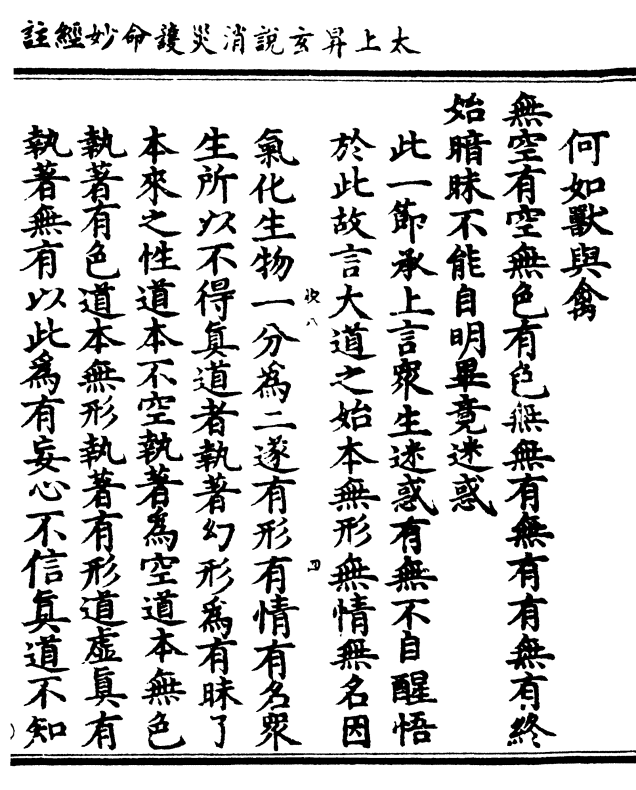 太上昇玄說消災護命妙經註
何如獸與禽
無空有空無色有色無無有無有有無有終
始暗昧不能自明畢竟迷惑
此一節承上言眾生迷惑有無不自醒悟
於此故言大道之始本無形無情無名因
氣化生物一分為二遂有形有情有名眾
生所以不得真道者執著幻形為有昧了
本來之性道本不空執著為空道本無色
執著有色道本無形執著有形道虛真有
執著無有以此為有妄心不信真道不知